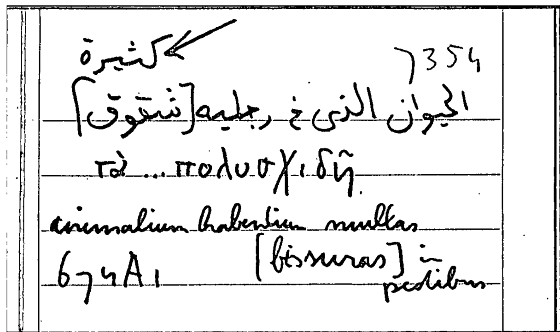 كثيرة
7354
الحيوان الذي في رجليه [شقوق]
τὰ ... πολυσχιδῆ
animalium habentium multas
[fissuras] in
pedibus
674A1